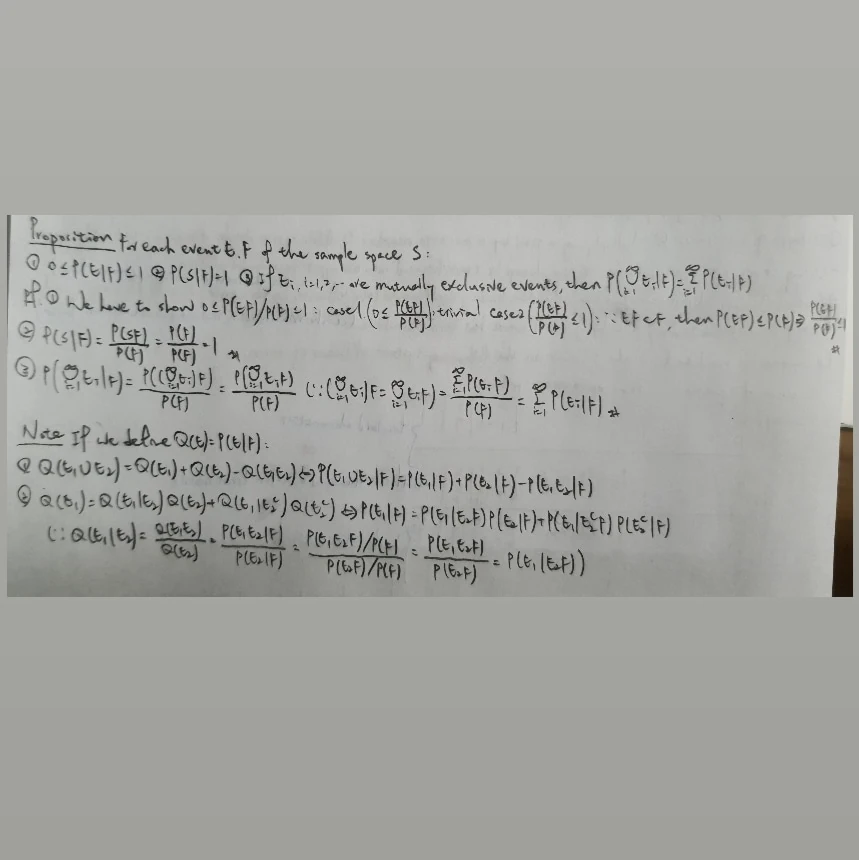 Proposition For each event E, F of the sample space S:
① 0≤P(E|F)≤1 ② P(S|F)=1 ③ If Ei, i=1,2,… are mutually exclusive events, then P(⋃_{i=1}^∞ Ei|F)=∑_{i=1}^∞ P(Ei|F)
pf. ① We have to show 0≤P(EF)/P(F)≤1: case1 (0≤ P(EF)/P(F)): trivial case2 (P(EF)/P(F) ≤1): ∵ EF⊂F, then P(EF)≤P(F) ⇒ P(EF)/P(F) ≤1 ※
② P(S|F)= P(SF)/P(F) = P(F)/P(F) = 1 ※
③ P(⋃_{i=1}^∞ Ei|F)= P((⋃_{i=1}^∞ Ei)F)/P(F) = P(⋃_{i=1}^∞ EiF)/P(F) (∵(⋃_{i=1}^∞ Ei)F=⋃_{i=1}^∞ EiF) = ∑_{i=1}^∞ P(EiF)/P(F) = ∑_{i=1}^∞ P(Ei|F) ※
Note If we define Q(E)=P(E|F):
① Q(E₁∪E₂)=Q(E₁)+Q(E₂)-Q(E₁E₂) ⇔ P(E₁∪E₂|F)=P(E₁|F)+P(E₂|F)-P(E₁E₂|F)
② Q(E₁)=Q(E₁|E₂)Q(E₂)+Q(E₁|E₂ᶜ)Q(E₂ᶜ) ⇔ P(E₁|F)=P(E₁|E₂F)P(E₂|F)+P(E₁|E₂ᶜF)P(E₂ᶜ|F)
(∵Q(E₁|E₂)= Q(E₁E₂)/Q(E₂) = P(E₁E₂|F)/P(E₂|F) = (P(E₁E₂F)/P(F))/(P(E₂F)/P(F)) = P(E₁E₂F)/P(E₂F) = P(E₁|E₂F))